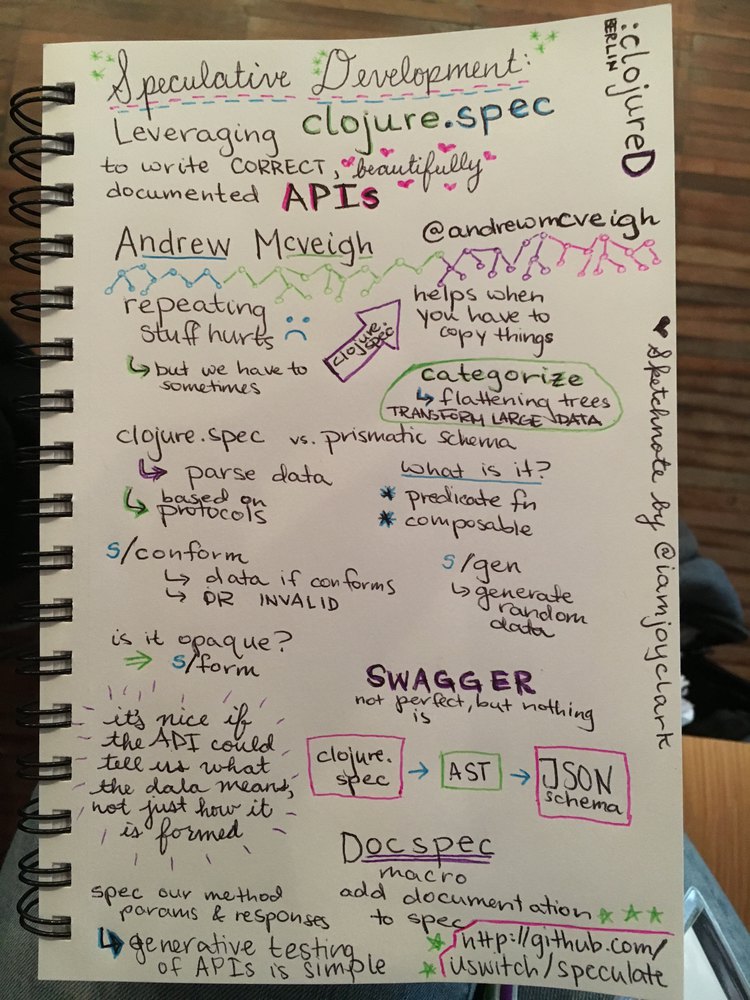 Speculative Development:
Leveraging clojure.spec
to write CORRECT, beautifully
documented APIs
:clojureD
BERLIN
Andrew Mcveigh @andrewmcveigh
repeating
stuff hurts
but we have to
sometimes
clojure.
spec
helps when
you have to
copy things
categorize
flattening trees
TRANSFORM LARGE DATA
clojure.spec vs. prismatic schema
parse data
based on
protocols
what is it?
* predicate fn
* composable
s/conform
data if conforms
OR INVALID
s/gen
generate
random
data
is it opaque?
s/form
SWAGGER
not perfect, but nothing
is
it's nice if
the API could
tell us what
the data means,
not just how it
is formed
clojure.
spec
AST
JSON
schema
Docspec
macro
add documentation
to spec
spec our method
params & responses
generative testing
of APIs is simple
http://github.com/
uswitch/speculate
Sketchnote by @iamjoyclark